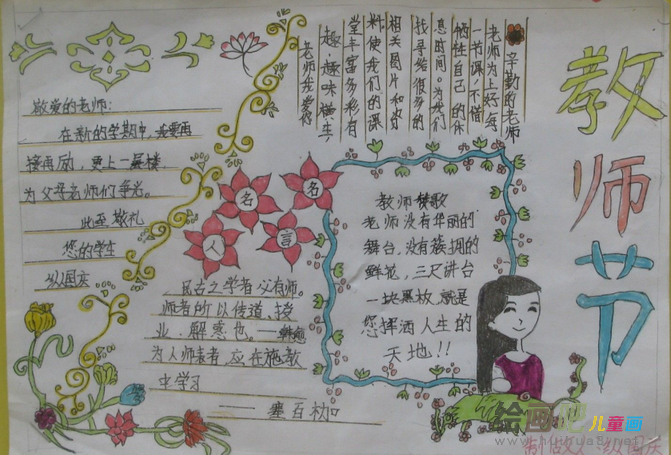 敬爱的老师:
在新的学期中,我要再
接再励,更上一层楼,
为父母老师们争光。
此至敬礼
您的学生
辛勤的老师
老师为上好每
一节课,不惜
牺牲自己的休
息时间。为我们
找寻给很多的
相关图片和资
料,使我们的课
堂丰富多彩有
趣,趣味横生
老师我爱你
教师节
名人名言
教师赞歌
老师没有华丽的
舞台,没有簇拥的
鲜花,三尺讲台
一块黑板,就是
您挥洒人生的
天地!!
古之学者必有师。
师者所以传道,授
业,解惑也。——韩愈
为人师表者,应在施教
中学习
绘画吧儿童画